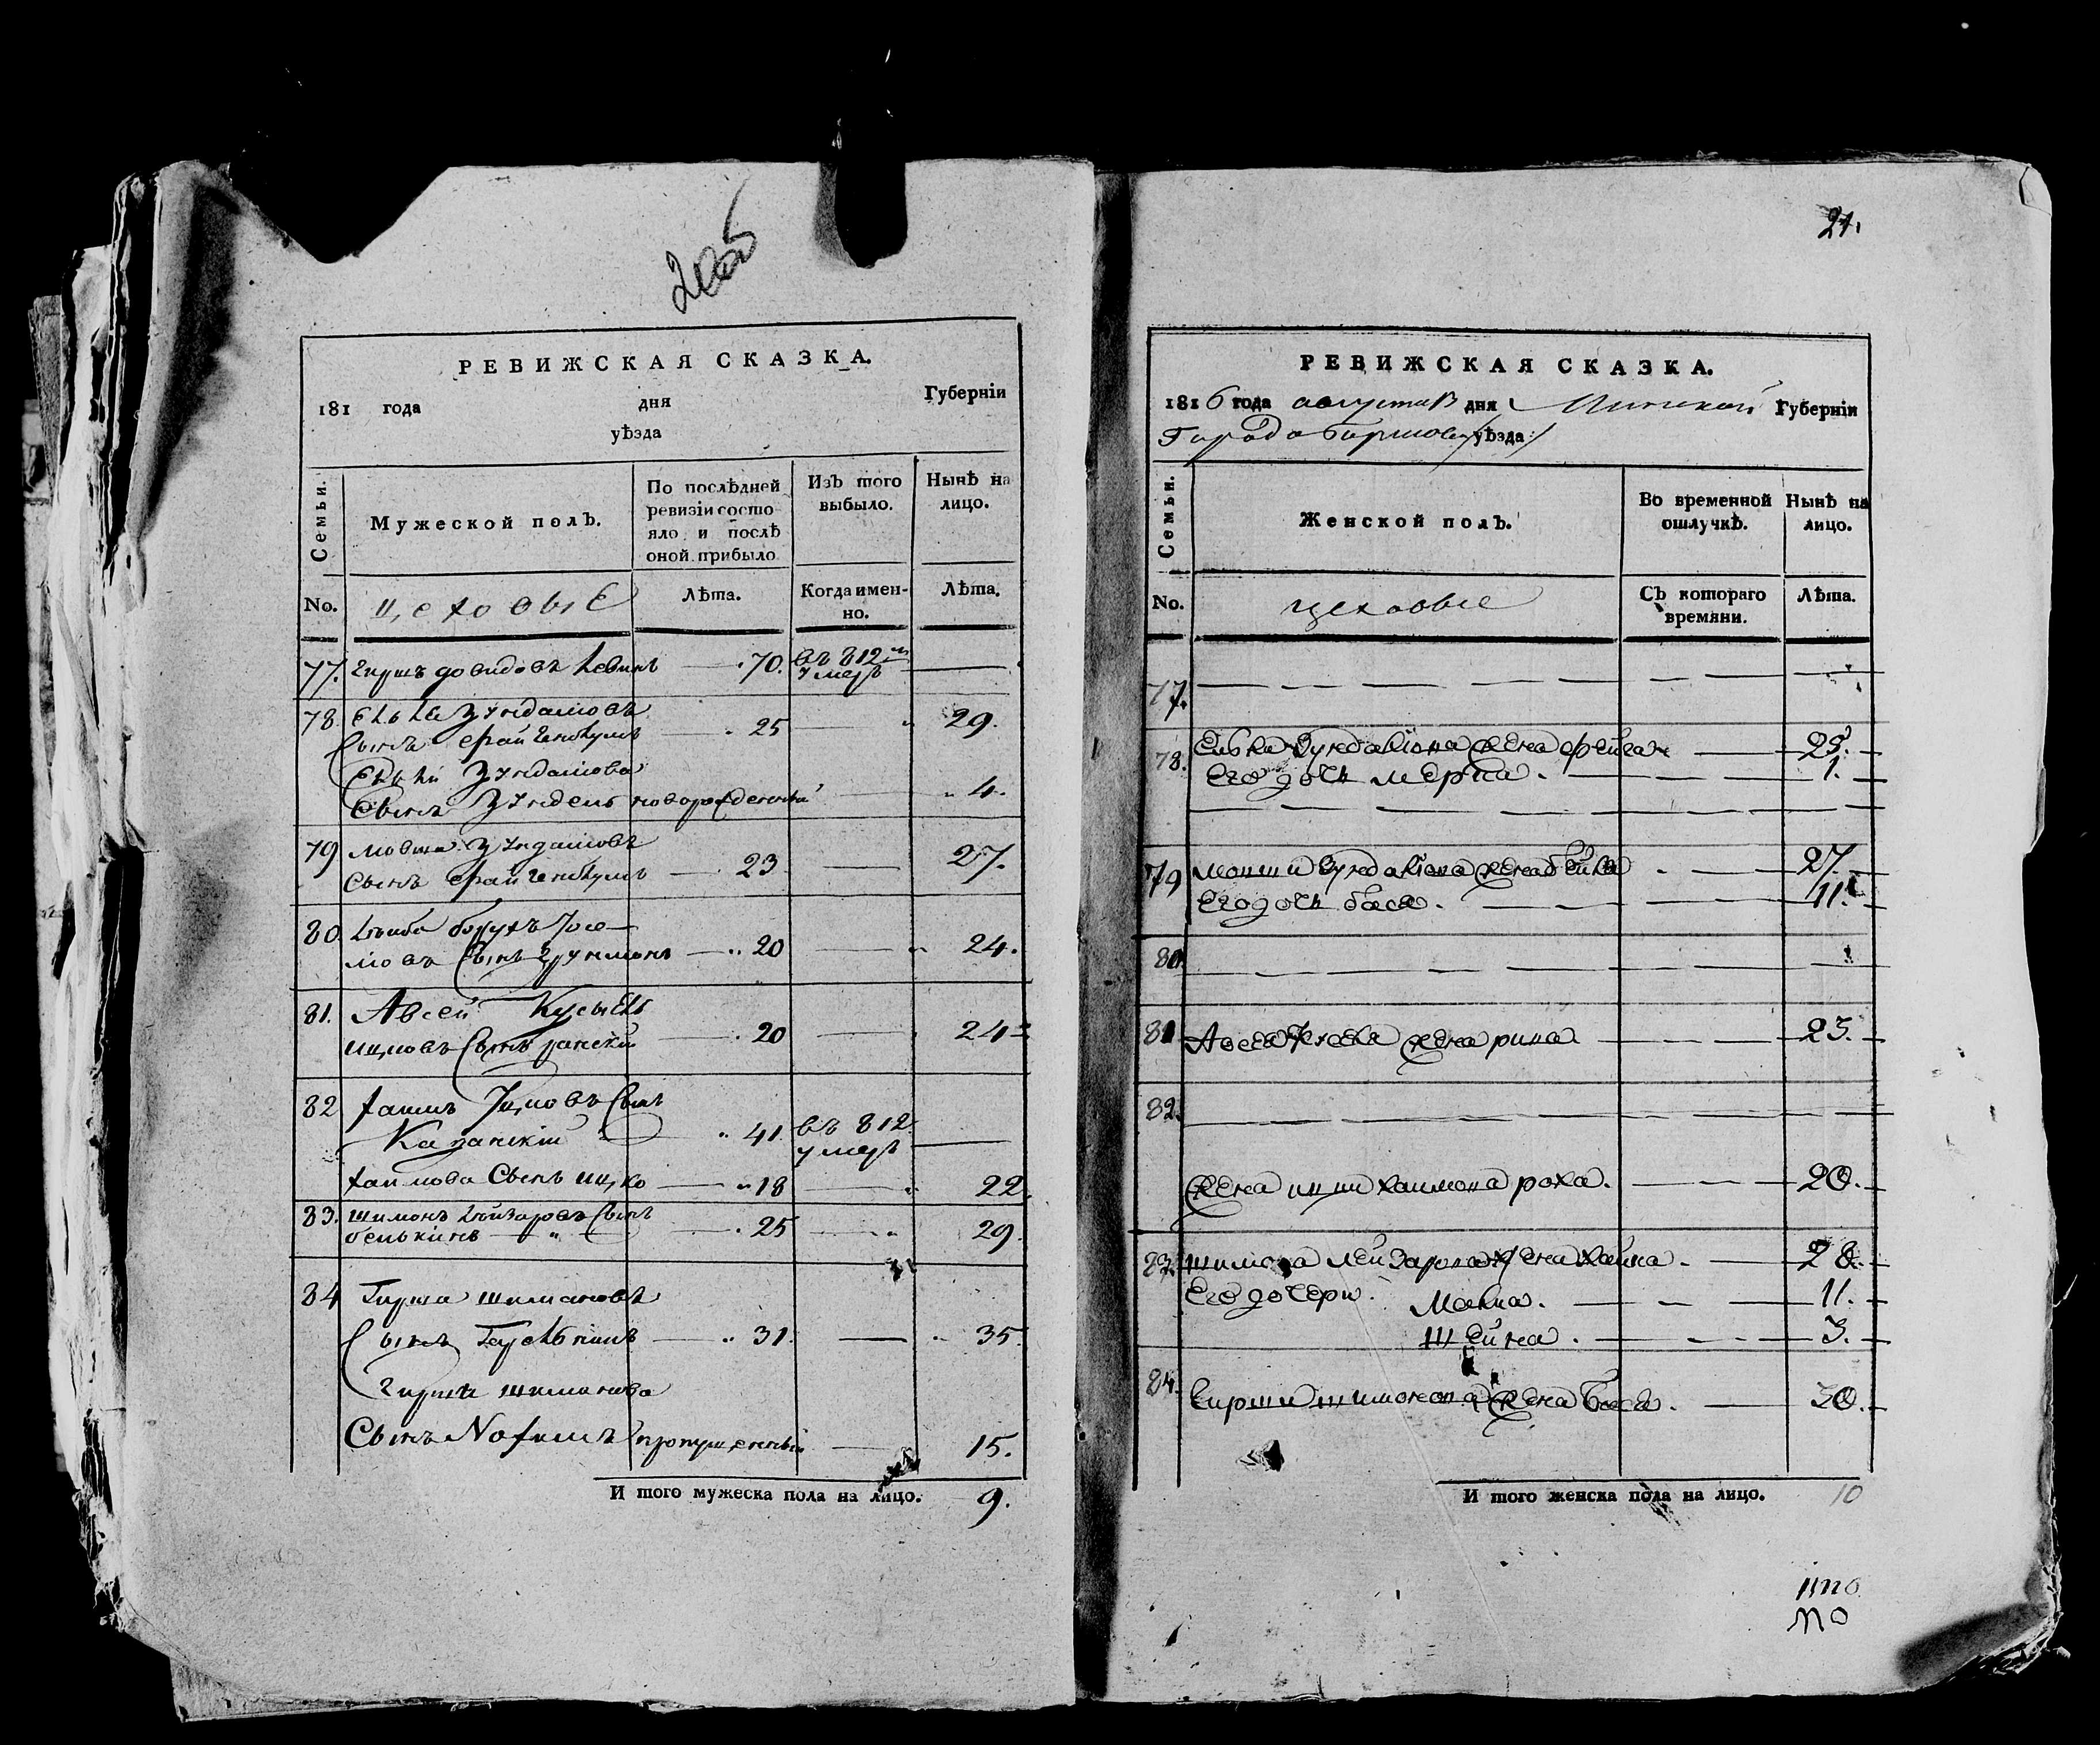 РЕВИЖСКАЯ СКАЗКА.
181 года дня Губерніи
уѣзда
Семьи. Мужеской полъ. По послѣдней ревизіи состояло и послѣ оной прибыло Изъ того выбыло. Нынѣ на лицо.
No. цеховые Лѣта. Когда именно. Лѣта.
77. гиршъ довидовъ левинъ 70. въ 812м
умеръ
78. Елья Зунделіовъ
Сынъ 25 29.
Ельи Зунделіова
Сынъ Зундель новорожденный 4.
79 мовша Зунделіовъ
Сынъ 23 27.
80. лейба борухъ Iосе-
ліовъ Сынъ 20 24.
81. Авсей
ицковъ Сынъ 20 24
82 хаимъ Ицковъ Сынъ
Казанскій 41. въ 812
умеръ
хаимова Сынъ ицко 18 22.
83. шимонъ лейзаровъ Сынъ
белькинъ 25 29.
84 Гирша шимановъ
Сынъ 31. 35.
гирши шиманова
Сынъ Nохимъ пропущенный 15.
И того мужеска пола на лицо. 9.
21.
РЕВИЖСКАЯ СКАЗКА.
1816 года августа дня Минской Губерніи
Города Борисова уѣзда
Семьи. Женской полъ. Во временной отлучкѣ. Нынѣ на лицо.
No. цеховые Съ котораго времяни. Лѣта.
77.
78. Елья Зунделіова жена фейга 25.
Его дочь мерка. 1.
79 мовши Зунделіова жена бейла 27.
Его дочь бася. 11.
80.
81 Авсея жена рина 23.
82.
жена ицки хаимова роха. 20.
83. шимона лейзарова жена хайка. 28.
Его дочери. Малка. 11.
Шейна. 3.
84. Гирши шимонова жена бася. 30.
И того женска пола на лицо. 10